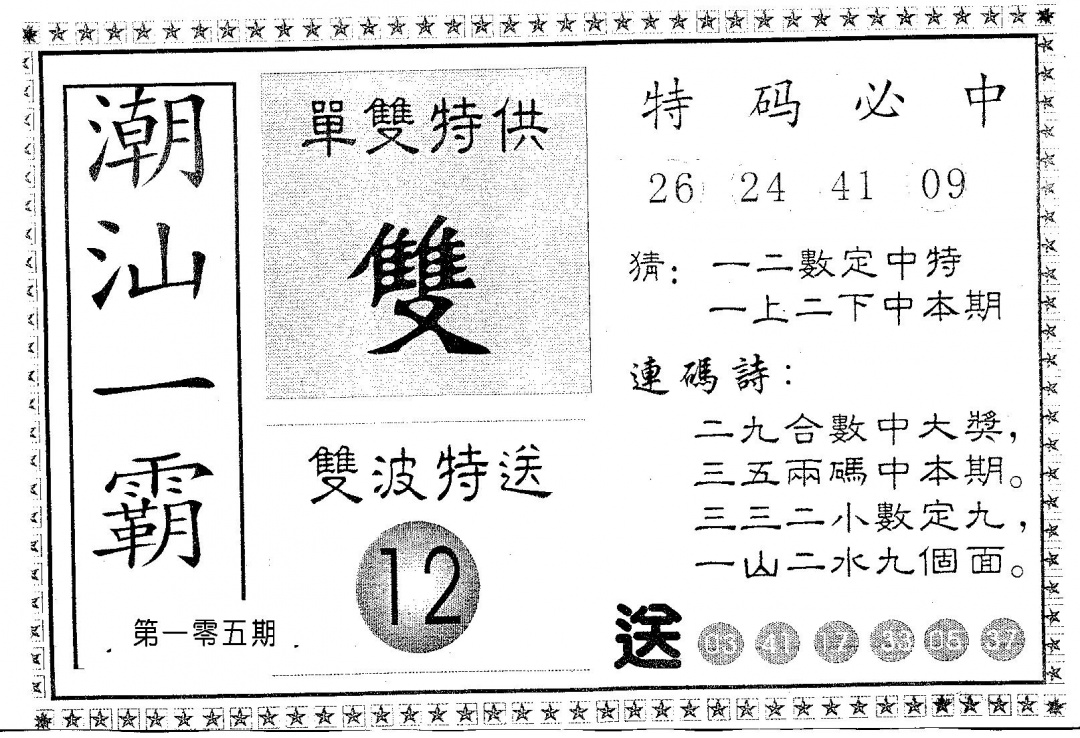 潮汕一霸
第一零五期
單雙特供
雙
雙波特送
12
特码必中
26 24 41 09
猜：一二數定中特
一上二下中本期
連碼詩：
二九合數中大獎，
三五兩碼中本期。
三三二小數定九，
一山二水九個面。
送 03 41 17 33 05 37